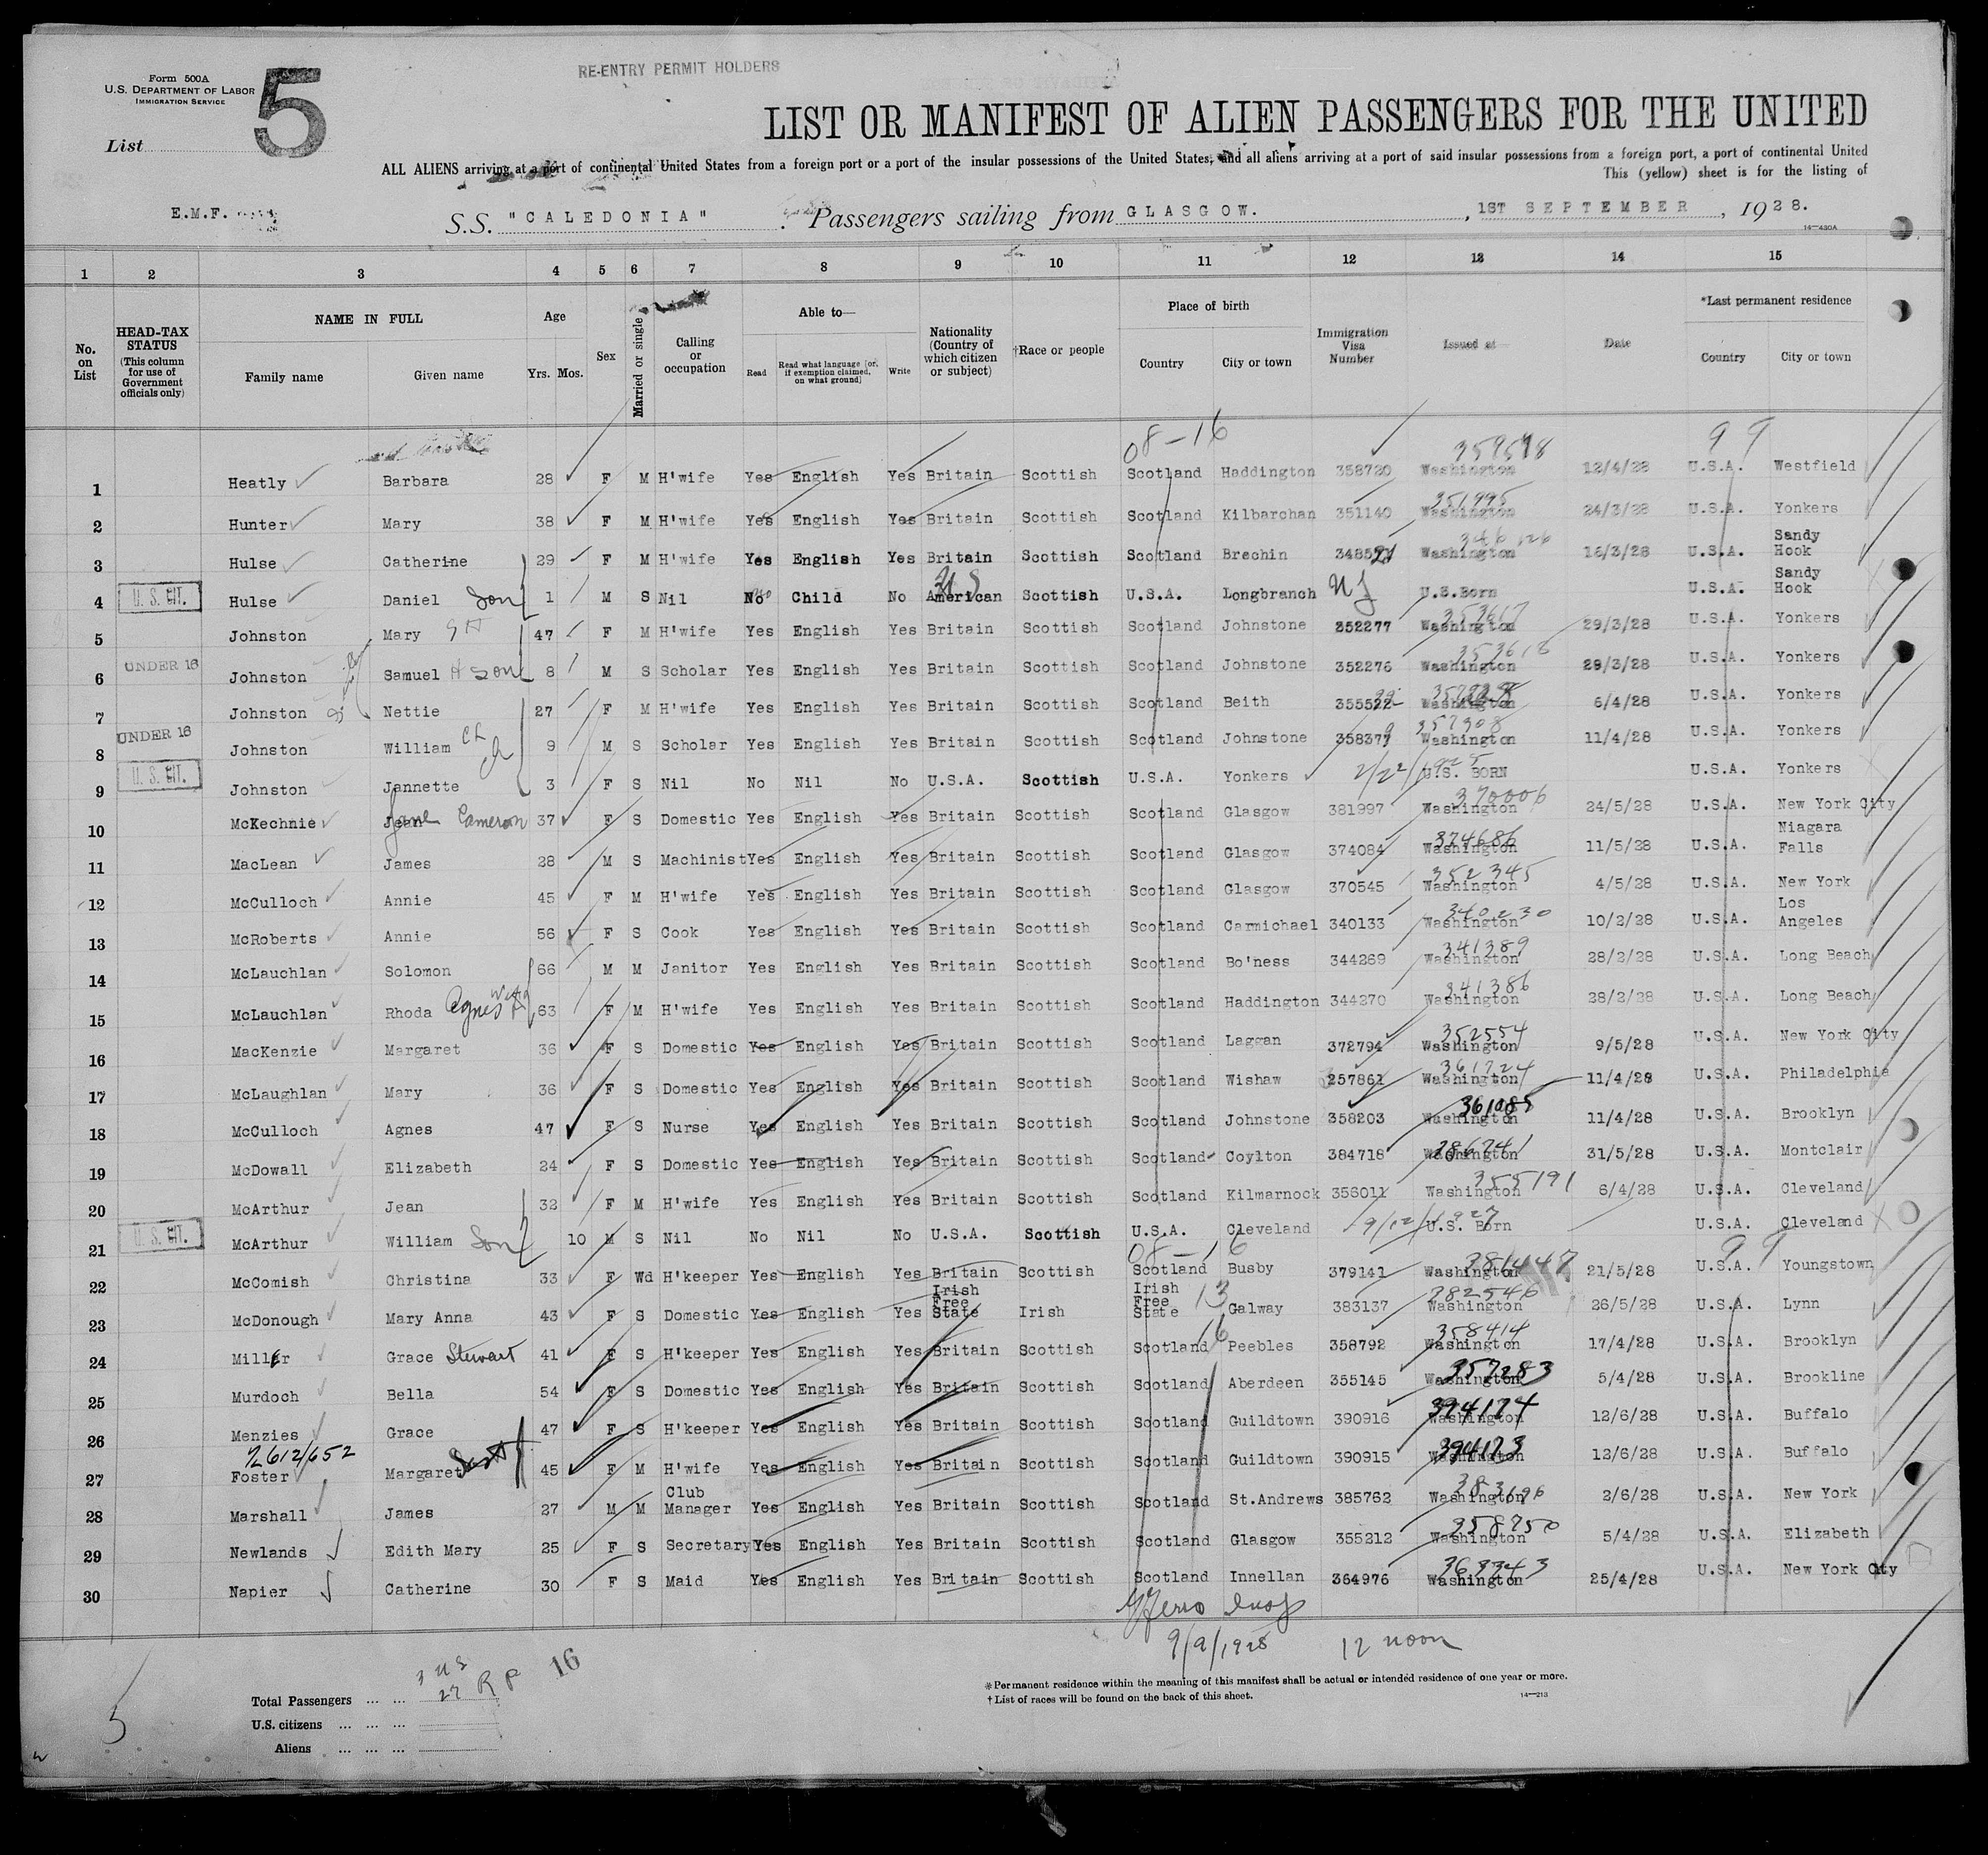 Form 500A
U.S. DEPARTMENT OF LABOR
IMMIGRATION SERVICE
List 5
RE-ENTRY PERMIT HOLDERS
LIST OR MANIFEST OF ALIEN PASSENGERS FOR THE UNITED
ALL ALIENS arriving at a port of continental United States from a foreign port or a port of the insular possessions of the United States, and all aliens arriving at a port of said insular possessions from a foreign port, a port of continental United
This (yellow) sheet is for the listing of
E.M.F. S.S. "CALEDONIA" Passengers sailing from GLASGOW. , 1ST SEPTEMBER , 1928.
14—430A
1 2 3 4 5 6 7 8 9 10 11 12 13 14 15
No. on List
HEAD-TAX STATUS (This column for use of Government officials only)
NAME IN FULL
Family name Given name
Age
Yrs. Mos.
Sex
Married or single
Calling or occupation
Able to—
Read Read what language [or, if exemption claimed, on what ground] Write
Nationality (Country of which citizen or subject)
†Race or people
Place of birth
Country City or town
Immigration Visa Number
Issued at
Date
*Last permanent residence
Country City or town
08-16 99
1 Heatly Barbara 28 F M H'wife Yes English Yes Britain Scottish Scotland Haddington 358720 Washington 12/4/28 U.S.A. Westfield
2 Hunter Mary 38 F M H'wife Yes English Yes Britain Scottish Scotland Kilbarchan 351140 Washington 351995 24/3/28 U.S.A. Yonkers
3 Hulse Catherine 29 F M H'wife Yes English Yes Britain Scottish Scotland Brechin Washington 16/3/28 U.S.A. Sandy Hook
4 U.S. CIT. Hulse Daniel Son 1 M S Nil No Child No American US Scottish U.S.A. Longbranch NJ U.S.Born U.S.A. Sandy Hook
5 Johnston Mary 47 F M H'wife Yes English Yes Britain Scottish Scotland Johnstone 352277 Washington 353617 29/3/28 U.S.A. Yonkers
6 UNDER 16 Johnston Samuel H son 8 M S Scholar Yes English Yes Britain Scottish Scotland Johnstone 352276 Washington 353618 29/3/28 U.S.A. Yonkers
7 Johnston Nettie 27 F M H'wife Yes English Yes Britain Scottish Scotland Beith 355522 Washington 6/4/28 U.S.A. Yonkers
8 UNDER 16 Johnston William 9 M S Scholar Yes English Yes Britain Scottish Scotland Johnstone Washington 357908 11/4/28 U.S.A. Yonkers
9 U.S. CIT. Johnston Jannette 3 F S Nil No Nil No U.S.A. Scottish U.S.A. Yonkers 2/22/1925 U.S. BORN U.S.A. Yonkers
10 McKechnie Jean Jane Cameron 37 F S Domestic Yes English Yes Britain Scottish Scotland Glasgow 381997 Washington 370006 24/5/28 U.S.A. New York City
11 MacLean James 28 M S Machinist Yes English Yes Britain Scottish Scotland Glasgow 374084 Washington 374686 11/5/28 U.S.A. Niagara Falls
12 McCulloch Annie 45 F M H'wife Yes English Yes Britain Scottish Scotland Glasgow 370545 Washington 352345 4/5/28 U.S.A. New York
13 McRoberts Annie 56 F S Cook Yes English Yes Britain Scottish Scotland Carmichael 340133 Washington 340230 10/2/28 U.S.A. Los Angeles
14 McLauchlan Solomon 66 M M Janitor Yes English Yes Britain Scottish Scotland Bo'ness 344269 Washington 341389 28/2/28 U.S.A. Long Beach
15 McLauchlan Rhoda Agnes 63 F M H'wife Yes English Yes Britain Scottish Scotland Haddington 344270 Washington 341386 28/2/28 U.S.A. Long Beach
16 MacKenzie Margaret 36 F S Domestic Yes English Yes Britain Scottish Scotland Laggan 372794 Washington 352554 9/5/28 U.S.A. New York City
17 McLaughlan Mary 36 F S Domestic Yes English Yes Britain Scottish Scotland Wishaw 257861 Washington 361724 11/4/28 U.S.A. Philadelphia
18 McCulloch Agnes 47 F S Nurse Yes English Yes Britain Scottish Scotland Johnstone 358203 Washington 361085 11/4/28 U.S.A. Brooklyn
19 McDowall Elizabeth 24 F S Domestic Yes English Yes Britain Scottish Scotland Coylton 384718 Washington 31/5/28 U.S.A. Montclair
20 McArthur Jean 32 F M H'wife Yes English Yes Britain Scottish Scotland Kilmarnock 356011 Washington 355191 6/4/28 U.S.A. Cleveland
21 U.S. CIT. McArthur William Son 10 M S Nil No Nil No U.S.A. Scottish U.S.A. Cleveland 9/12/1927 U.S. Born U.S.A. Cleveland
08-16 99
22 McComish Christina 33 F Wd H'keeper Yes English Yes Britain Scottish Scotland Busby 379141 Washington 21/5/28 U.S.A. Youngstown
23 McDonough Mary Anna 43 F S Domestic Yes English Yes Irish Free State Irish Irish Free State 13 Galway 383137 Washington 382546 26/5/28 U.S.A. Lynn
24 Miller Grace Stewart 41 F S H'keeper Yes English Yes Britain Scottish Scotland 16 Peebles 358792 Washington 358414 17/4/28 U.S.A. Brooklyn
25 Murdoch Bella 54 F S Domestic Yes English Yes Britain Scottish Scotland Aberdeen 355145 Washington 357283 5/4/28 U.S.A. Brookline
26 Menzies Grace 47 F S H'keeper Yes English Yes Britain Scottish Scotland Guildtown 390916 Washington 394174 12/6/28 U.S.A. Buffalo
27 Foster Margaret 45 F M H'wife Yes English Yes Britain Scottish Scotland Guildtown 390915 Washington 394173 12/6/28 U.S.A. Buffalo
28 Marshall James 27 M M Club Manager Yes English Yes Britain Scottish Scotland St.Andrews 385762 Washington 2/6/28 U.S.A. New York
29 Newlands Edith Mary 25 F S Secretary Yes English Yes Britain Scottish Scotland Glasgow 355212 Washington 5/4/28 U.S.A. Elizabeth
30 Napier Catherine 30 F S Maid Yes English Yes Britain Scottish Scotland Innellan 364976 Washington 25/4/28 U.S.A. New York City
9/9/1928 12 noon
3 US
27 RP 16
Total Passengers ... ...
U.S. citizens ... ... ...
Aliens ... ... ...
5
*Permanent residence within the meaning of this manifest shall be actual or intended residence of one year or more.
†List of races will be found on the back of this sheet.
14—213